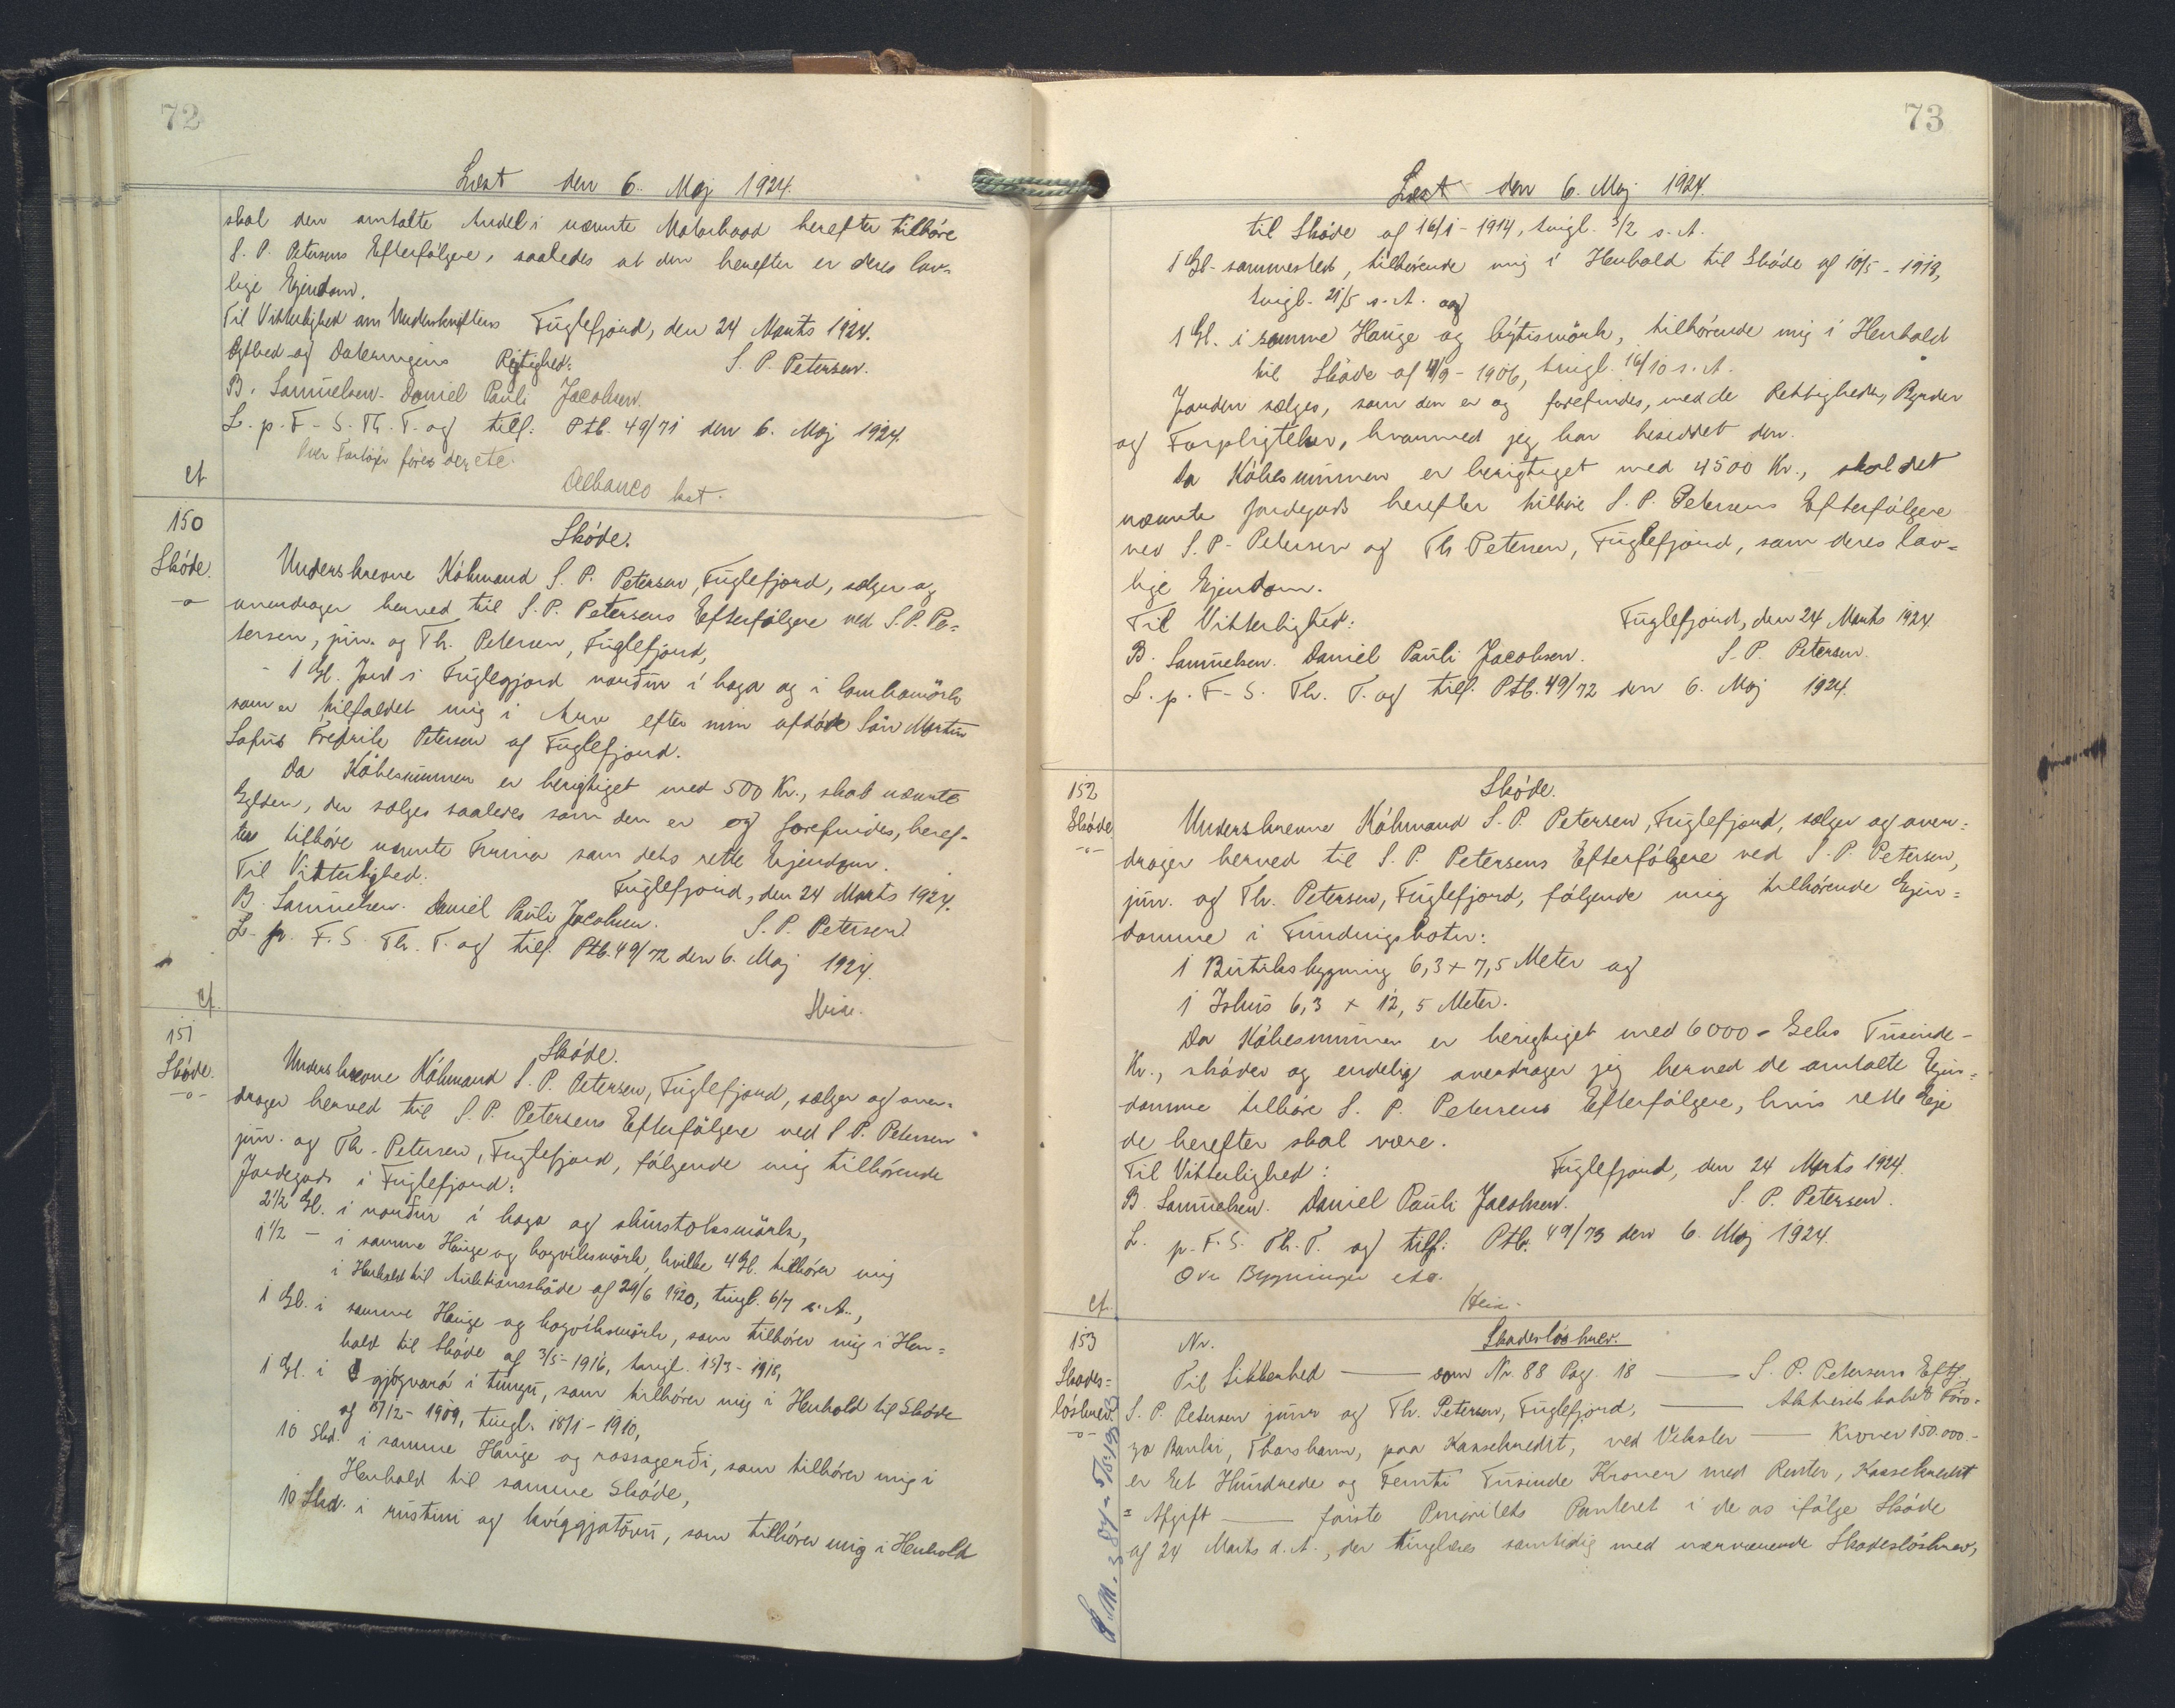 72
Læst den 6. Maj 1924.
skal den omtalte Andel i nævnte Motorbaad herefter tilhöre
S. P. Petersens Efterfölgere, saaledes at den herefter er deres lov-
lige Ejendom.
Til Vitterlighed om Underskriftens Fuglefjord, den 24 Marts 1924.
Ægthed og Dateringens Rigtighed: S. P. Petersen.
B. Samuelsen. Daniel Pauli Jacobsen.
L. p. F. S. Th. T. og tilf: Ptb. 49/71 den 6. Maj 1924.
Over Fartöjer föres der etc.
cf.
150
Sköde.
-o-
Sköde.
Underskrevne Köbmand S. P. Petersen, Fuglefjord, sælger og
overdrager herved til S. P. Petersens Efterfölgere ved S. P. Pe-
tersen, jun. og Th. Petersen, Fuglefjord,
1 Gl. Jord i Fuglefjord norður í haga og i lambamörk
som er tilfaldet mig i Arv efter min afdöde Sön Martin
Sofus Fredrik Petersen af Fuglefjord.
Da Köbesummen er berigtiget med 500 Kr., skal nævnte
Gylden, der sælges saaledes som den er og forefindes, heref-
ter tilhöre nævnte Firma som dets rette Ejendom.
Til Vitterlighed: Fuglefjord, den 24 Marts 1924.
B. Samuelsen. Daniel Pauli Jacobsen. S. P. Petersen
L. p. F. S. Th. T. og tilf. Ptb. 49/72 den 6. Maj 1924.
cf.
151
Sköde.
-o-
Sköde.
Underskrevne Köbmand S. P. Petersen, Fuglefjord, sælger og over-
drager herved til S. P. Petersens Efterfölgere ved S. P. Petersen
jun. og Th. Petersen, Fuglefjord, fölgende mig tilhörende
Jordegods i Fuglefjord:
2 1/2 Gl. i norður í haga og skinstoksmörk,
1 1/2 - i samme Hauge og hogvíksmörk, hvilke 4 Gl. tilhörer mig
i Henhold til Auktionssköde af 29/6 1920, tingl. 6/7 s. A.,
1 Gl. i samme Hauge og hogvíksmörk, som tilhörer mig i Hen-
hold til Sköde af 3/5 - 1916, tingl. 15/3 - 1918,
1 Gl. i gjógvará í túngu, som tilhörer mig i Henhold til Sköde
af 17/12 - 1909, tingl. 18/1 - 1910,
10 Skd. i samme Hauge og rossagerði, som tilhörer mig i
Henhold til samme Sköde,
10 Skd. i rústini og kvíggjatöun, som tilhörer mig i Henhold
73
Læst den 6. Maj 1924.
til Sköde af 16/1 - 1914, tingl. 3/2 s. A.
1 Gl. sammesteds, tilhörende mig i Henhold til Sköde af 10/5 - 1918,
tingl. 21/5 s. A. og
1 Gl. i samme Hauge og býtismörk, tilhörende mig i Henhold
til Sköde af 4/9 - 1906, tingl. 16/10 s. A.
Jorden sælges, som den er og forefindes, med de Rettigheder, Byrder
og Forpligtelser, hvormed jeg har besiddet den.
Da Köbesummen er berigtiget med 4500 Kr., skal det
nævnte Jordegods herefter tilhöre S. P. Petersens Efterfölgere
ved S. P. Petersen og Th Petersen, Fuglefjord, som deres lov-
lige Ejendom.
Til Vitterlighed: Fuglefjord, den 24 Marts 1924.
B. Samuelsen. Daniel Pauli Jacobsen. S. P. Petersen.
L. p. F. S. Th. T. og tilf. Ptb. 49/72 den 6. Maj 1924.
152
Sköde
-o-
Sköde.
Underskrevne Köbmand S. P. Petersen, Fuglefjord, sælger og over-
drager herved til S. P. Petersens Efterfölgere ved S. P. Petersen,
jun. og Th. Petersen, Fuglefjord, fölgende mig tilhörende Ejen-
domme i Fundingsbotn:
1 Butiksbygning 6,3 x 7,5 Meter og
1 Ishus 6,3 x 12,5 Meter.
Da Köbesummen er berigtiget med 6000 = Seks Tusinde -
Kr., sköder og endelig overdrager jeg herved de omtalte Ejen-
domme tilhöre S. P. Petersens Efterfölgere, hvis rette Eje
de herefter skal være.
Til Vitterlighed: Fuglefjord, den 24 Marts 1924.
B. Samuelsen. Daniel Pauli Jacobsen. S. P. Petersen.
L. p. F. S. Th. T. og tilf: Ptb. 49/73 den 6. Maj 1924.
Ovr Bygninger etc.
cf.
153
Skades-
lösbrev.
-o-
Nr. Skadeslösbrev.
Til Sikkerhed — som Nr. 88 Pag. 18 — S. P. Petersens Eftf.,
S. P. Petersen junr og Th. Petersen, Fuglefjord, — Aktieselskabet Föro-
ya Banki, Thorshavn, paa Kassekredit, ved Veksler — Kroner 150.000.-
er Eet Hundrede og Femti Tusinde Kroner med Renter, Kassekredit
= Afgift — förste Prioritets Panteret i de os ifölge Sköde
af 24 Marts d. A., der tinglæses samtidig med nærværende Skadeslösbrev,